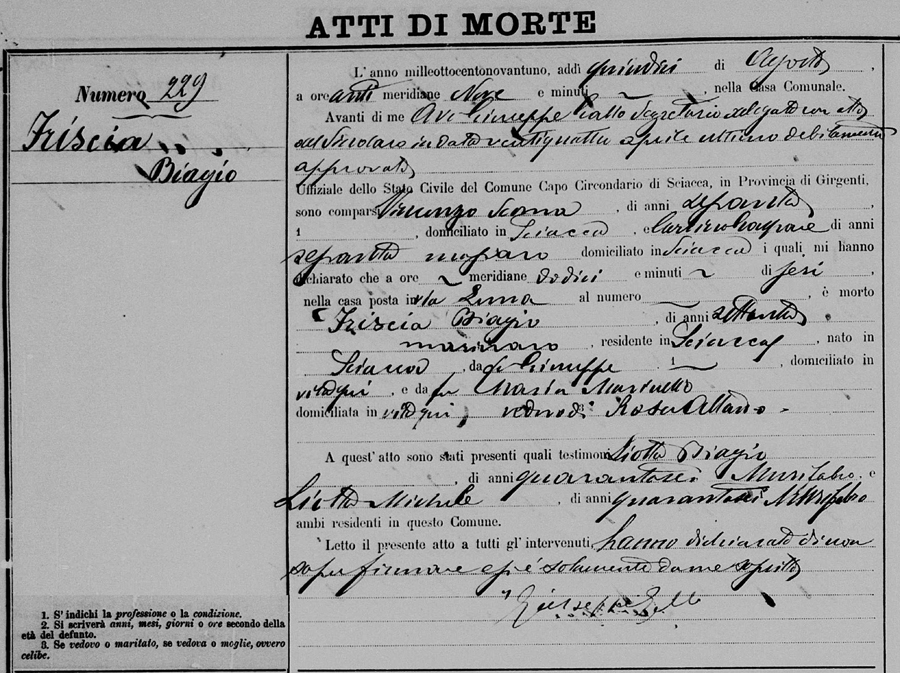 ATTI DI MORTE
Numero 229
Friscia
Biagio
L'anno milleottocentonovantuno, addì quindici di Agosto,
a ore anti meridiane Nove e minuti ~, nella Casa Comunale.
Avanti di me Avv. Giuseppe Gallo Segretario delegato con atto
del Sindaco in data ventiquattro aprile ultimo debitamente
approvato
Uffiziale dello Stato Civile del Comune Capo Circondario di Sciacca, in Provincia di Girgenti,
sono comparsi Vincenzo, di anni sessanta,
1, domiciliato in Sciacca, e di anni
sessanta domiciliato in Sciacca i quali mi hanno
dichiarato che a ore ~ meridiane dodici e minuti ~ di jeri,
nella casa posta in via Luna al numero ~, è morto
Friscia Biagio, di anni settanta,
marinaro, residente in Sciacca, nato in
Sciacca, da fu Giuseppe 1, domiciliato in
vita qui, e da fu Maria
domiciliata in vita qui, vedovo di Rosa
A quest'atto sono stati presenti quali testimoni Liotta Biagio
, di anni quarantasei Murifabro, e
Liotta Michele, di anni Murifabro
ambi residenti in questo Comune.
Letto il presente atto a tutti gl'intervenuti, hanno dichiarato di non
saper firmare e si è solamente da me soscritto
Giuseppe Gallo
1. S'indichi la professione o la condizione.
2. Si scriverà anni, mesi, giorni o ore secondo della
età del defunto.
3. Se vedovo o maritato, se vedova o moglie, ovvero
celibe.